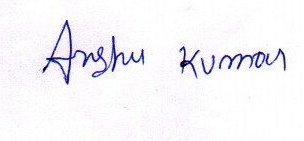 Anshu Kumar